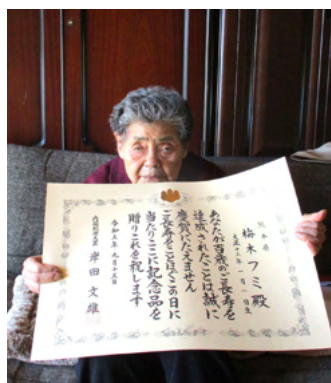 熊本県
梅木フミ殿
大正十二年一月一日生
あなたが百歳のご長寿を
達成されたことは誠に
慶賀にたえません
ご長寿をことほぐこの日に
当たりここに記念品を
贈りこれを祝します
令和五年九月十五日
内閣総理大臣 岸田文雄